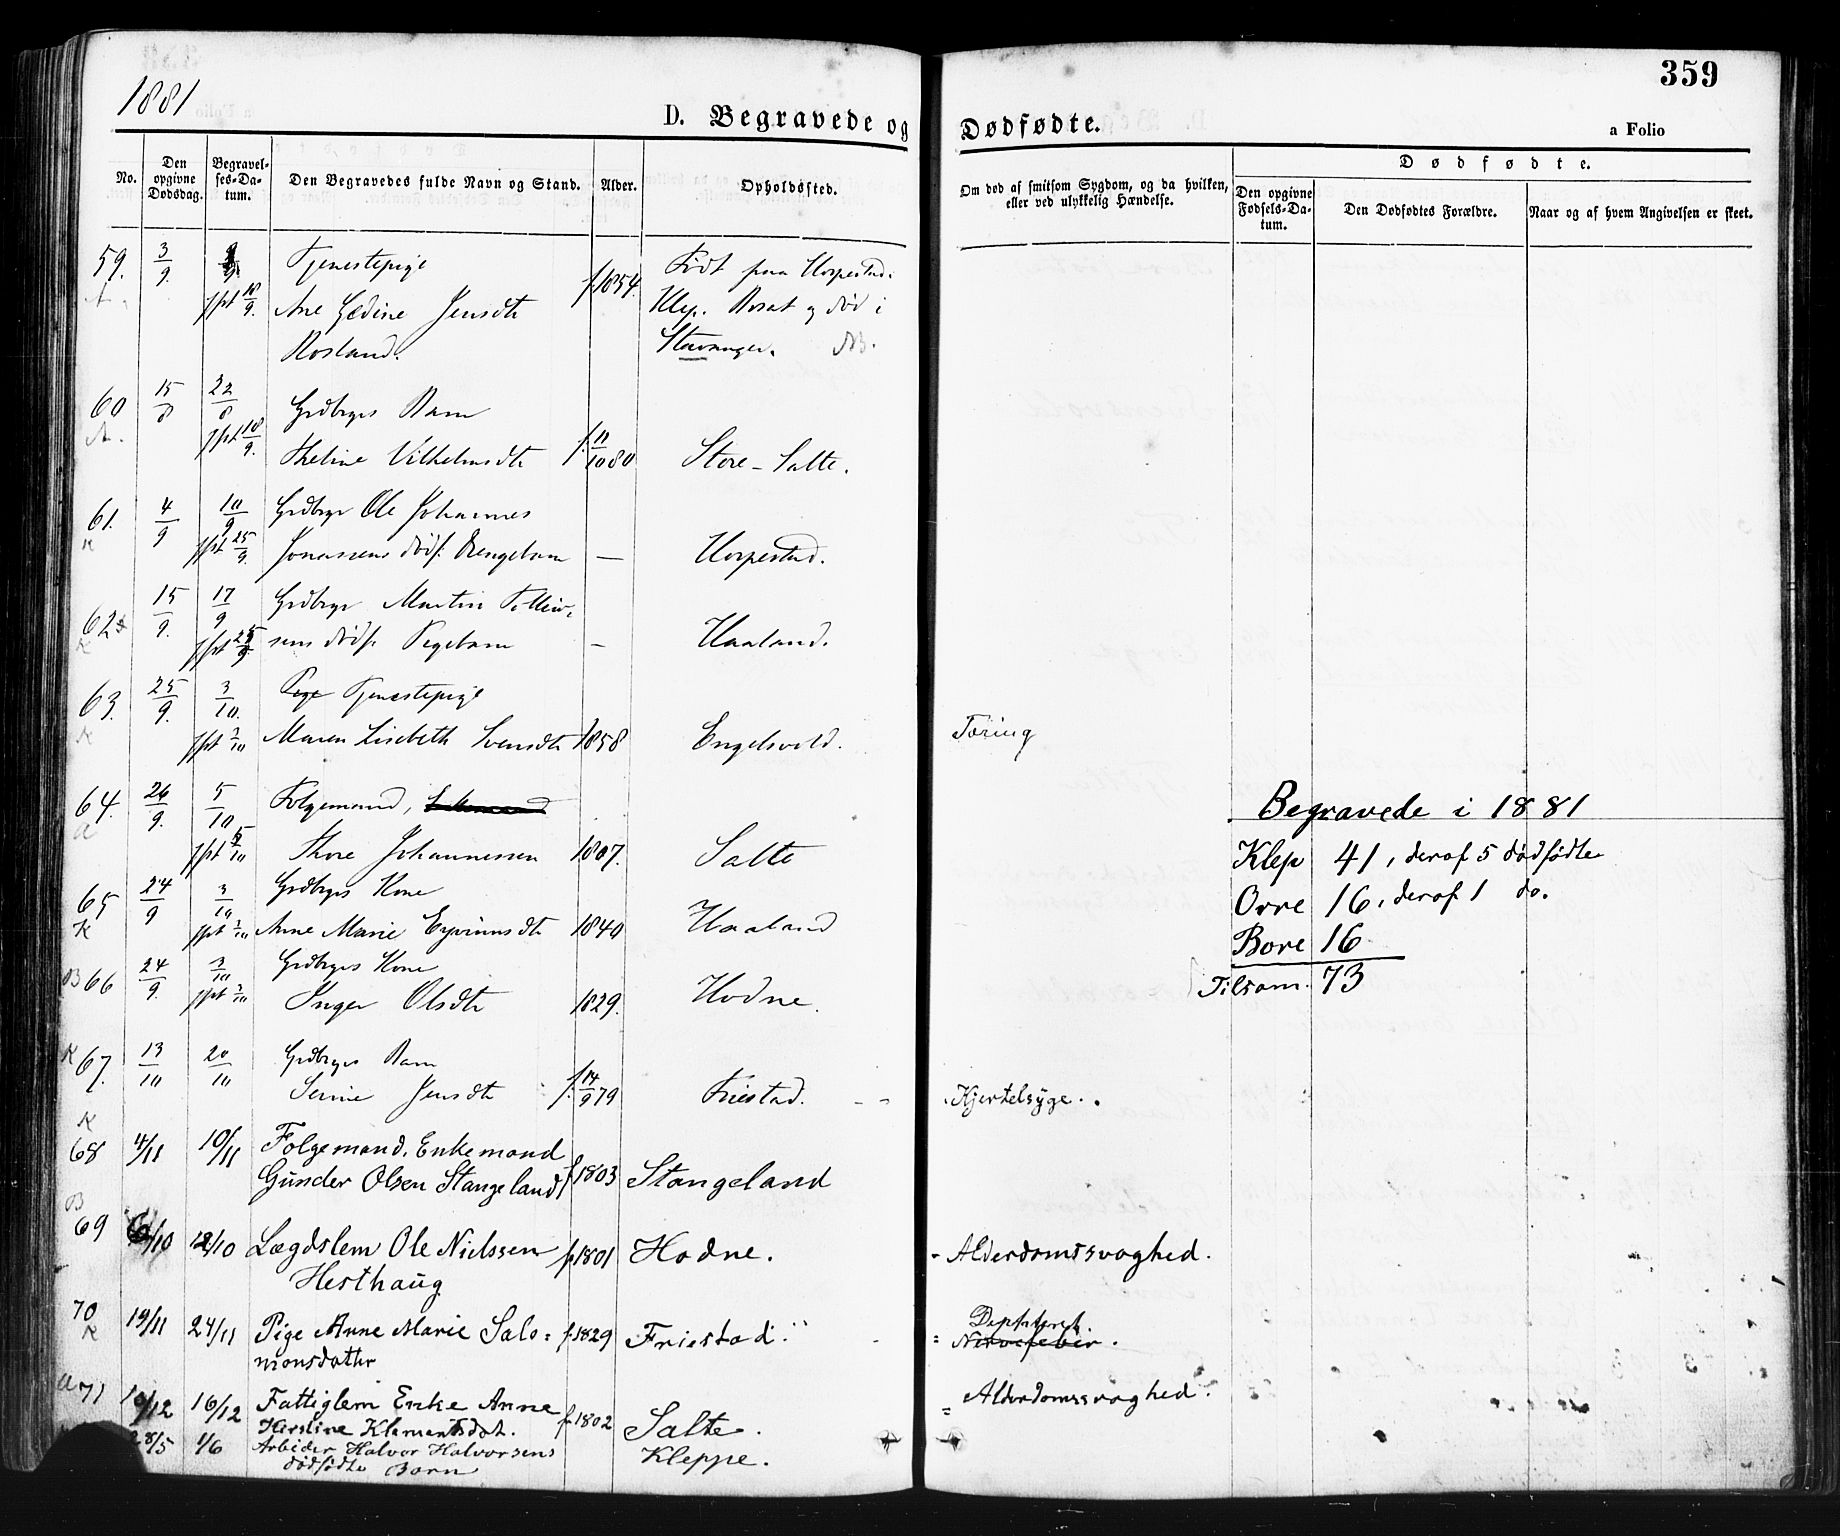 1881
359
D. Begravede og Dødfødte.
a Folio
No.
Den opgivne Dødsdag.
Begravelses-Datum.
Den Begravedes fulde Navn og Stand.
Alder.
Opholdssted.
Om død af smitsom Sygdom, og da hvilken, eller ved ulykkelig Hændelse.
Dødfødte.
Den opgivne Fødsels-Datum.
Den Dødfødtes Forældre.
Naar og af hvem Angivelsen er skeet.
59. 3/9. Tjenestepige Født paa Horpestad.
jfpt 18/9. Ane Gædine Jensdtr f. 1854. Klep. Bosat og død i
Rosland. Stavanger. NB.
60 15/8 22/8 Grdbrgs Barn
jfpt 18/9. Theline Vilhelmsdtr f. 11/10 80 Store-Salte.
61. 4/9 10/9 Grdbrgr Ole Johannes
K jfpt 25/9. Jonassens dødf. Drengebarn — Horpestad.
62 15/9. 17/9 Grdbrgr Martin Tollivsens dødf. Pigebarn — Haaland.
K jfpt 25/9.
63. 25/9. 3/10. Pige Tjenestepige
K jfpt 3/10 Maren Lisebeth Svendsdtr 1858 Engelsvold. Tæring
64. 26/9. 5/10 Folgemand, Enkemand
a jfpt 5/10 Thore Johannessen 1807. Salte
65 24/9 3/10 Grdbrgs Kone
K jfpt 3/10 Anne Marie Eyvinnsdtr 1840 Haaland
B 66 24/9. 3/10 Grdbrgs Kone
jfpt 3/10 Inger Olsdtr 1829. Hodne.
K 67. 13/10 20/10 Grdbrgs Barn
Serine Jensdtr f. 14/9 79 Friestad. Kjertelsyge.
K
68 4/11 10/11 Folgemand, Enkemand
Gunder Olsen Stangeland f 1803 Stangeland
B
69 6/10 12/10 Lægdslem Ole Nielssen f 1801 Hodne. - Alderdomssvaghed.
Hesthaug
70 19/11 24/11 Pige Anne Marie Salo= f. 1829 Friestad. = Nervefeber.
K monsdatter
a 71 10/12 16/12 Fattiglem Enke Anne f. 1802 Salte. = Alderdomssvaghed.
Kirstine Klementsdat.
28/5 1/6 Arbeider Halvor Halvorsens Kleppe.
dødfødte Barn
Begravede i 1881
Klep 41, deraf 5 dødfødte
Orre 16, deraf 1 do.
Bore 16
Tilsam. 73